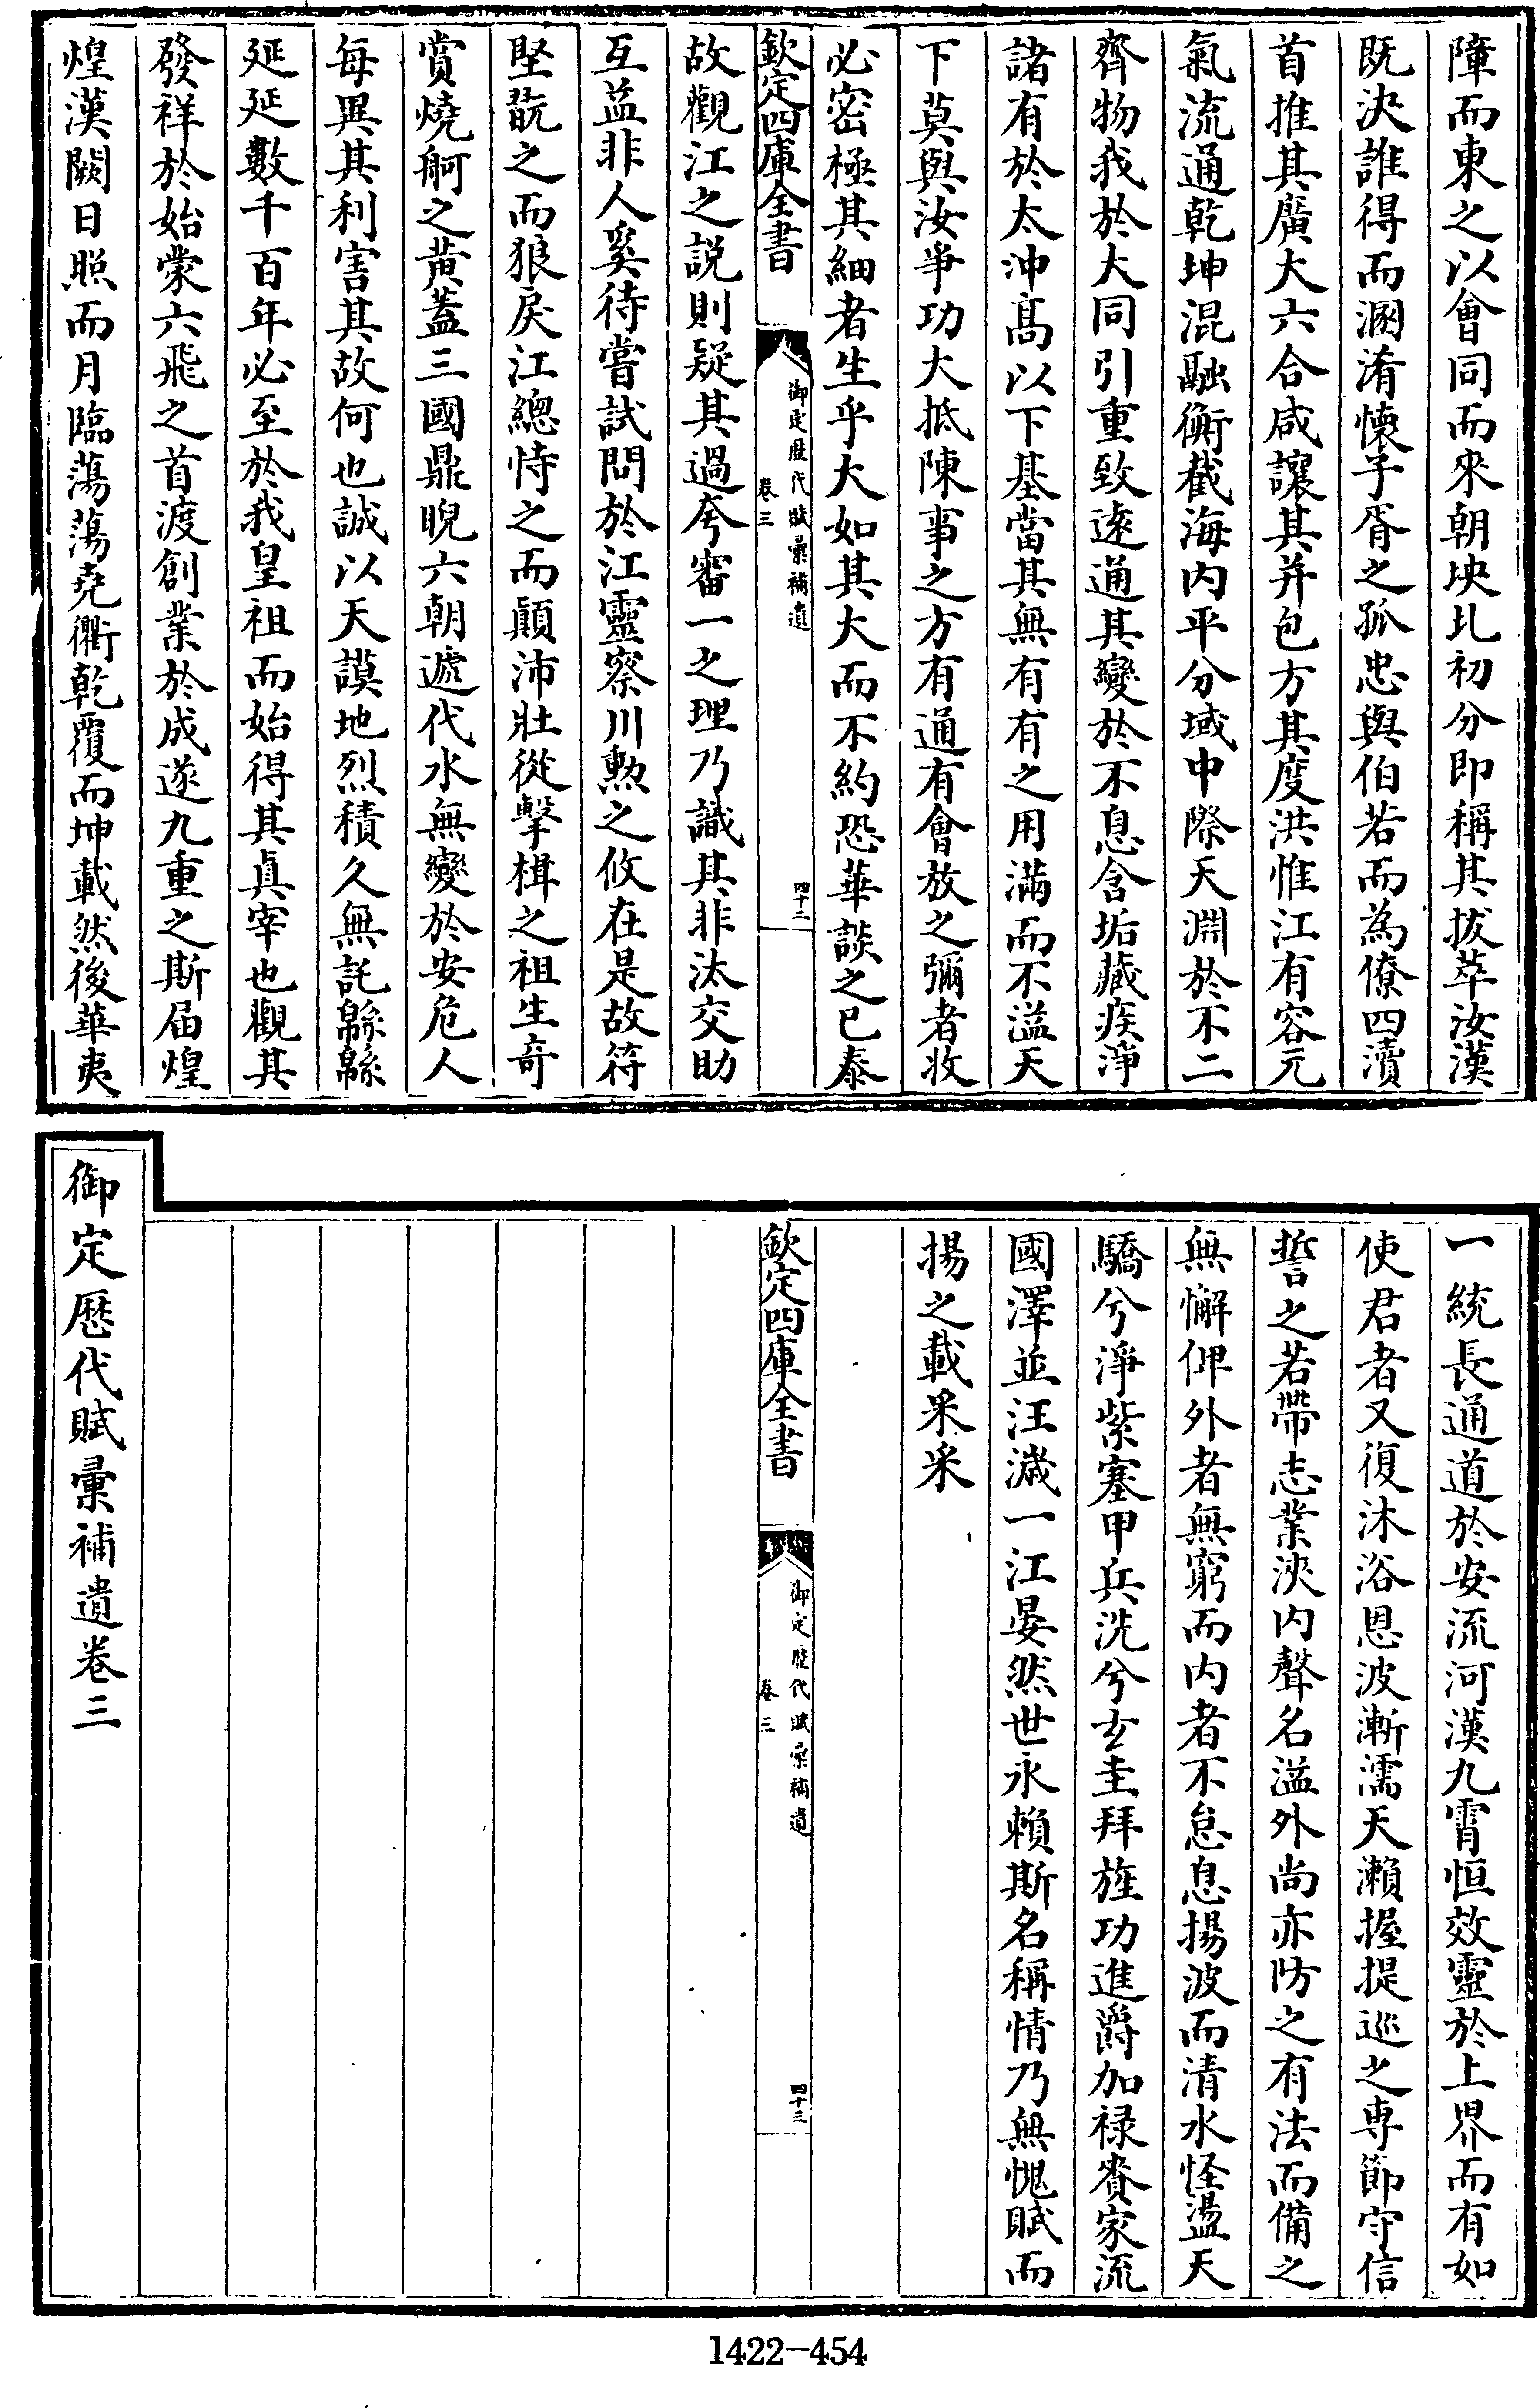 障而東之以會同而來朝坱圠初分即稱其拔萃汝漢
既決誰得而溷淆懷子胥之孤忠與伯若而為僚四瀆
首推其廣大六合咸讓其并包方其度洪惟江有容元
氣流通乾坤混融衡截海内平分域中際天淵於不二
齊物我於大同引重致遠通其變於不息含垢藏疾淨
諸有於太沖髙以下基當其無有有之用滿而不溢天
下莫與汝爭功大抵陳事之方有通有會放之彌者收
必密極其細者生乎大如其大而不約恐華談之已泰
欽定四庫全書
御定歴代賦彙補遺
卷三
四十二
故觀江之説則疑其過夸審一之理乃識其非汰交助
互益非人奚待嘗試問於江靈察川勲之攸在是故符
堅翫之而狼戾江總恃之而顛沛壯從擊楫之祖生奇
賞燒舸之黄蓋三國鼎睨六朝遞代水無變於安危人
每異其利害其故何也誠以天謨地烈積久無託緜緜
延延數千百年必至於我皇祖而始得其眞宰也觀其
發祥於始蒙六飛之首渡創業於成遂九重之斯届煌
煌漢闕日照而月臨蕩蕩堯衢乾覆而坤載然後華夷
一統長通道於安流河漢九霄恒效靈於上界而有如
使君者又復沐浴恩波漸濡天瀬握提巡之専節守信
誓之若帶志業浹内聲名溢外尚亦防之有法而備之
無懈俾外者無窮而内者不怠息揚波而清水怪盪天
驕兮淨紫塞甲兵洗兮玄圭拜旌功進爵加禄賚家流
國澤並汪濊一江晏然世永賴斯名稱情乃無愧賦而
揚之載采采
欽定四庫全書
御定歴代賦彙補遺
卷三
四十三
御定歴代賦彙補遺卷三
1422-454